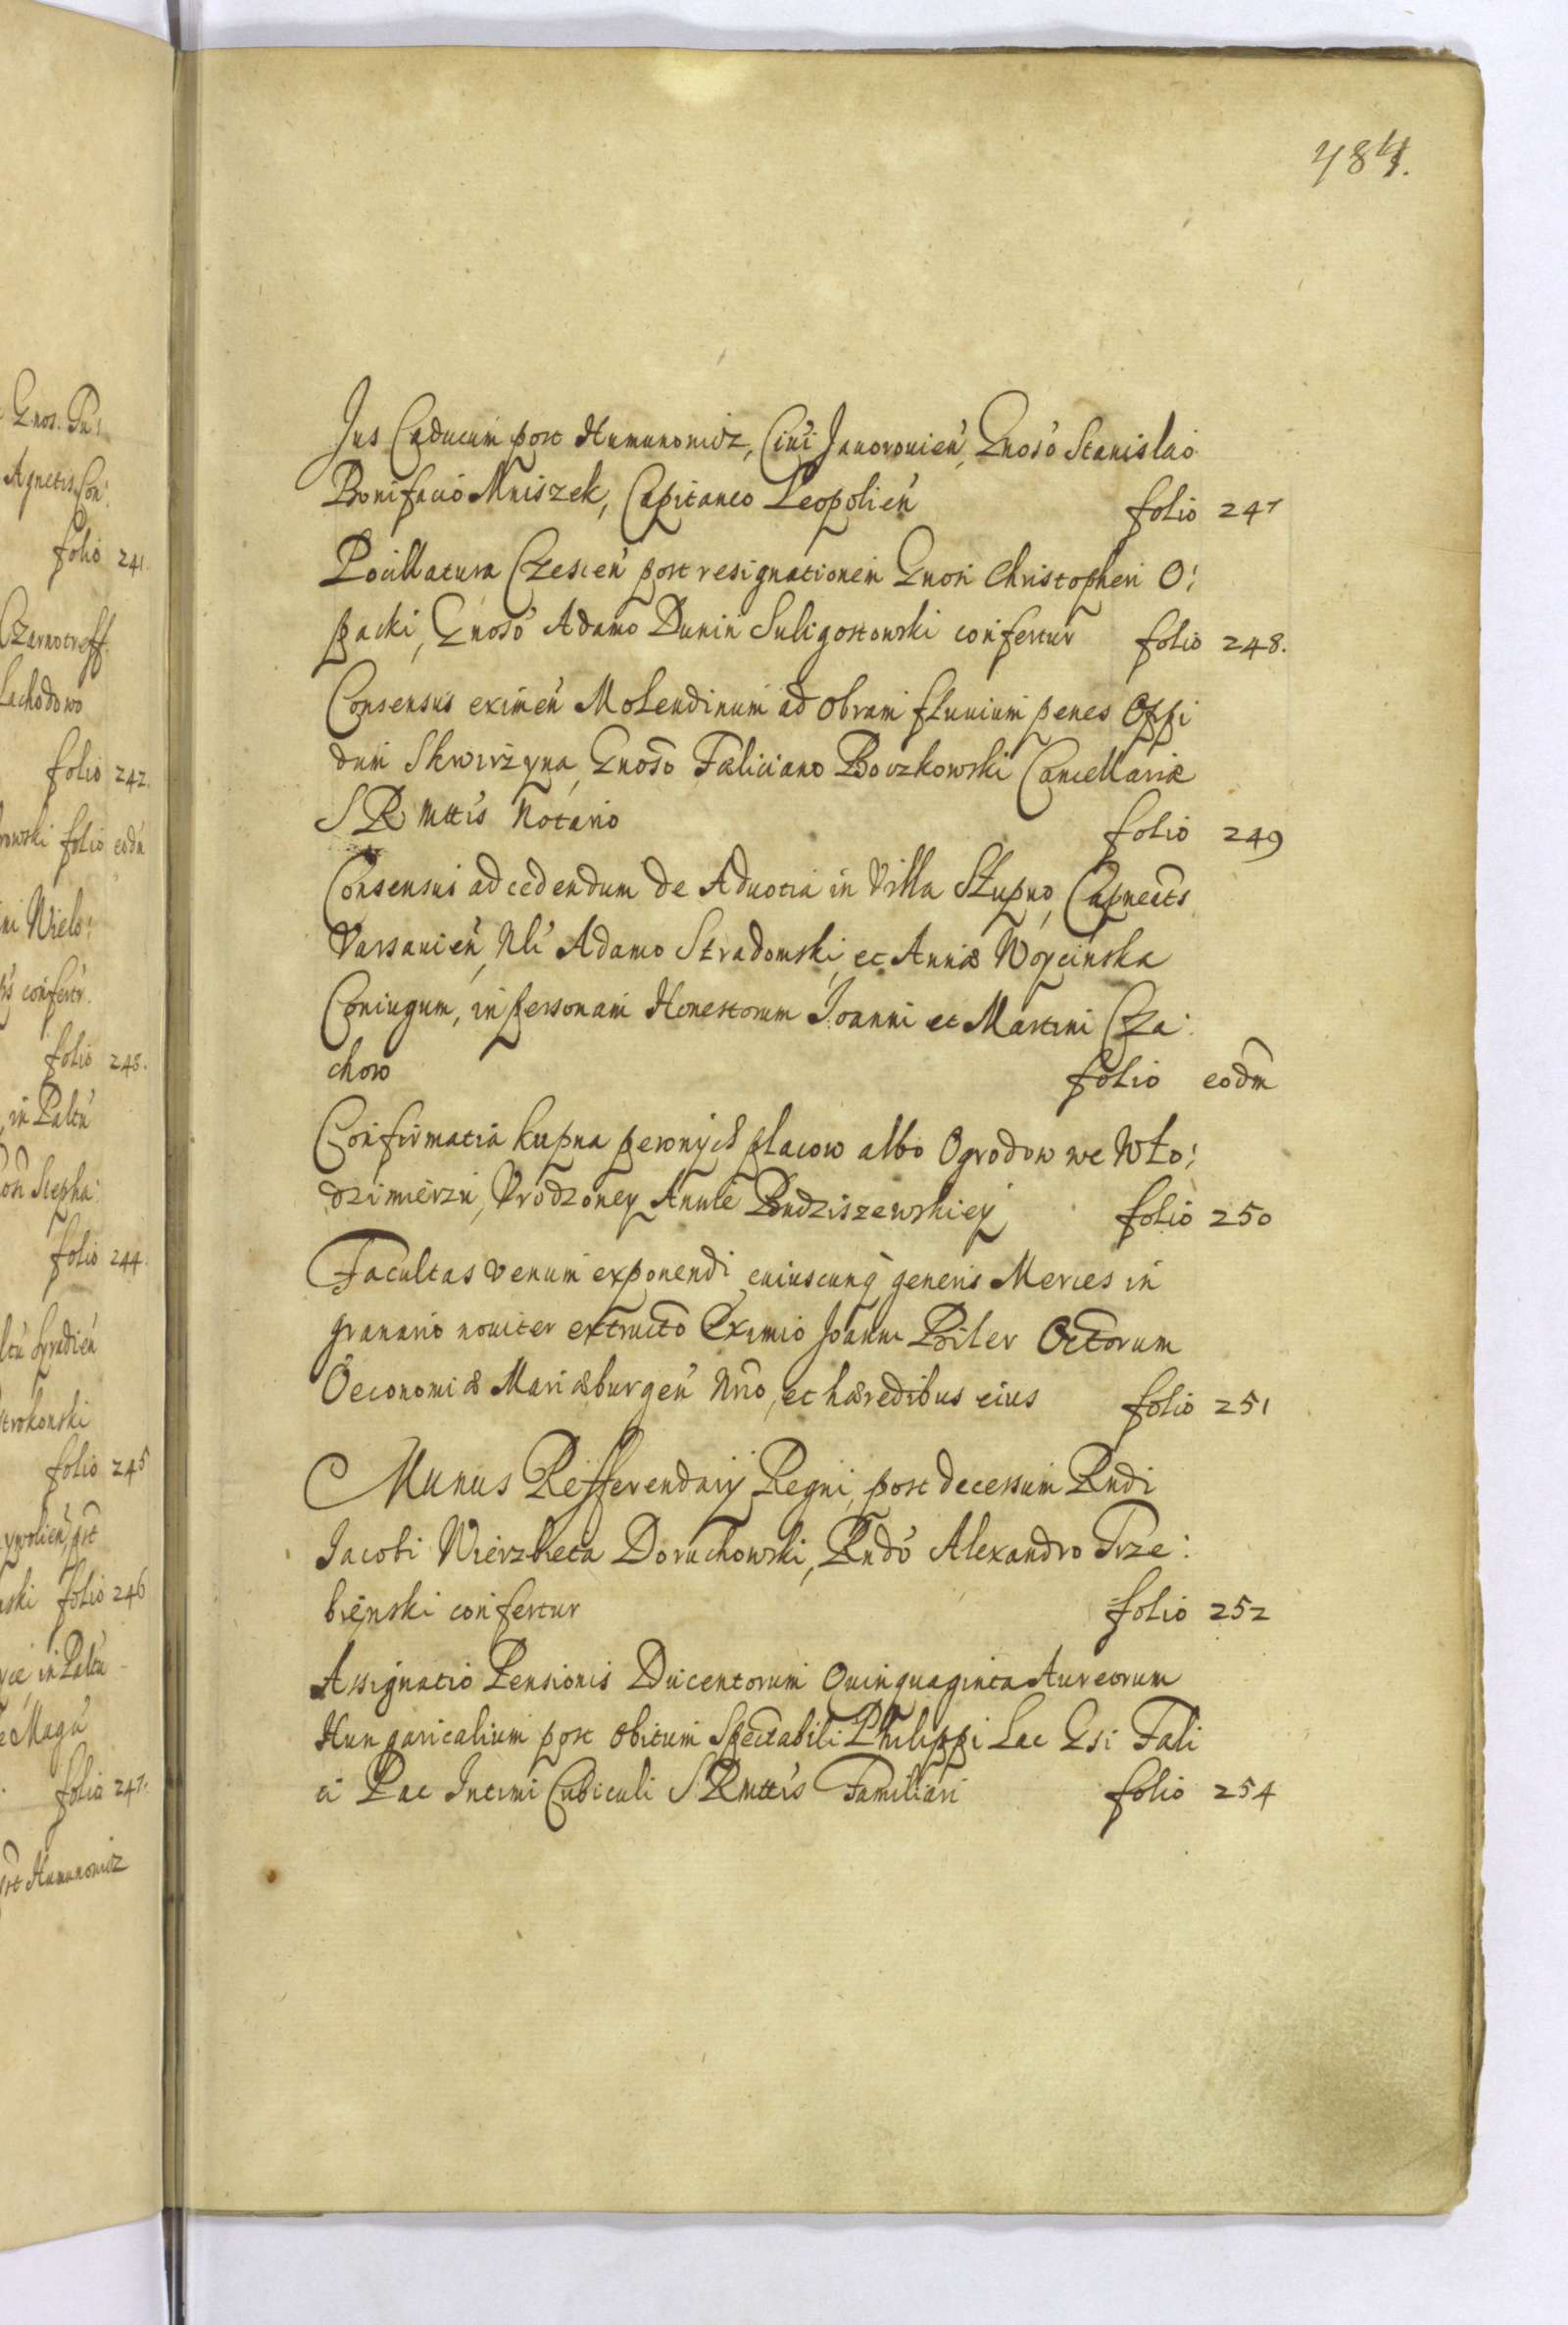 484.
Jus Caducum post Humunowicz, Civi Javorovien, Gnoso Stanislao
Bonifacio Mniszek, Capitaneo Leopolien folio 247
Pocillatura Czescen post resignationem Gnosi Christopheri O:
packi, Gnoso Adamo Dunin Suligostowski confertur folio 248.
Consensus eximen Molendinum ad Obram fluvium penes Oppi
dum Skwirzyna Gnoso Fæliciano Boczkowski Cancellariæ
S R Mttis Notario folio 249
Consensus ad cedendum de Advotia in Villa Słupno, Capneats
Varsavien, Nli Adamo Stradomski, et Annæ Woycinska
Coniugum, in personam Honestorum Joanni et Martini Cza:
chow folio eodm
Confirmatia kupna pewnych placow albo Ogrodow we Wło:
dzimierzu, Vrodzoney Annie Bendziszewskiey folio 250
Facultas venum exponendi cuiuscunq generis Merces in
granario noviter extructo Eximio Joanni Piler Octorum
Oeconomiæ Mariæburgen Nrio, et hæredibus eius folio 251
Munus Refferendarij Regni, post decessum Rndi
Jacobi Wierzbieta Doruchowski, Rndo Alexandro Trze:
bienski confertur folio 252
Assignatio Pensionis Ducentorum Quinquaginta Aureorum
Hungaricalium post obitum Spectabili Philippi Lac Gsi Fali
ci Pac Intimi Cubiculi S R Mttis Familiari folio 254
Gnos. Pn:
Agnetis Con:
folio 241.
Czarnotreff
Lachodowo
folio 242.
rowski folio eodn
ni Wielo:
confertr.
folio 243.
in Paltu
Stepha:
folio 244.
trokonski
folio 245
ski folio 246
in Paltu
Magn
folio 247.
Humunowicz